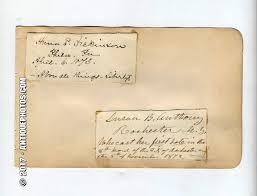 Anna E. Dickinson
Phila. Pa
April 6, 1876
Above all things - Liberty
Susan B. Anthony
Rochester - N.Y.
Who cast her first vote in the
8th ward of the City of Rochester -
November 1872
© 2017 - ANTIQUEPHOTOS.COM